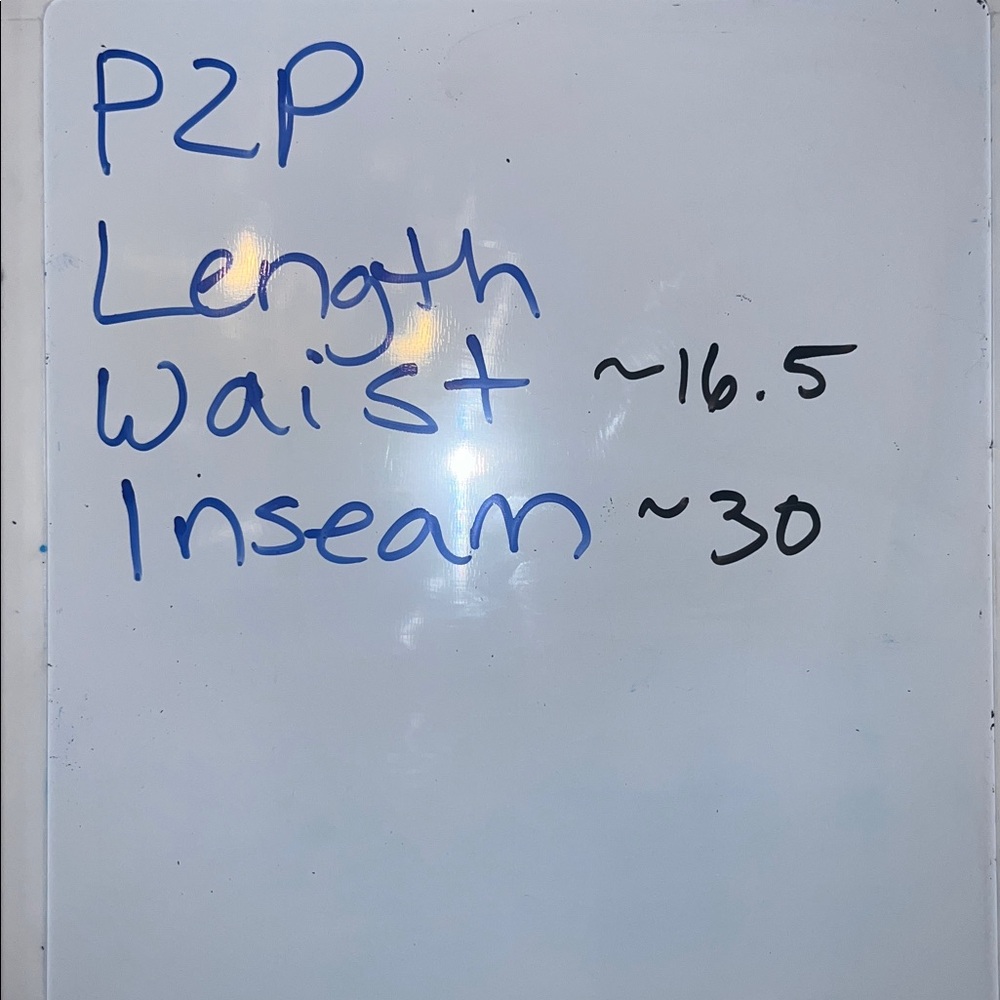 P2P
Length
Waist ~16.5
Inseam ~30